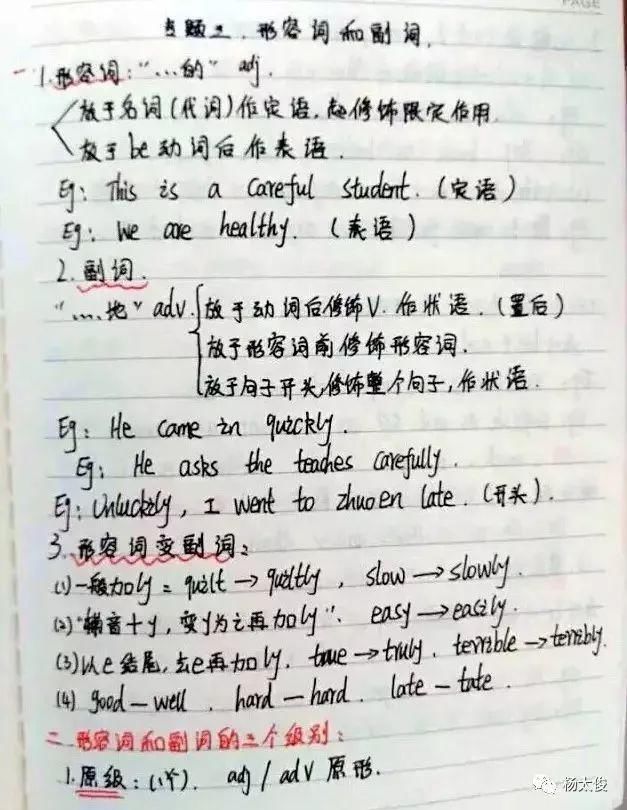 PAGE
专题二. 形容词和副词.
一
1.形容词:“…的” adj.
放于名词(代词)作定语,起修饰限定作用.
放于be动词后作表语.
Eg: This is a careful student. (定语)
Eg: We are healthy. (表语)
2.副词.
“…地” adv. 放于动词后修饰V.作状语.(置后)
放于形容词前修饰形容词.
放于句子开头,修饰整个句子,作状语.
Eg: He came in quickly.
Eg: He asks the teaches carefully.
Eg: Unluckily, I went to zhuoen late. (开头).
3.形容词变副词:
(1)一般加ly = quilt → quiltly, slow → slowly.
(2)“辅音+y,变y为i再加ly”. easy → easily.
(3)以e结尾,去e再加ly. true → truly. terrible → terribly.
(4) good — well. hard — hard. late — tate.
二.形容词和副词的三个级别:
1.原级:(1个). adj / adv 原形.
杨太俊